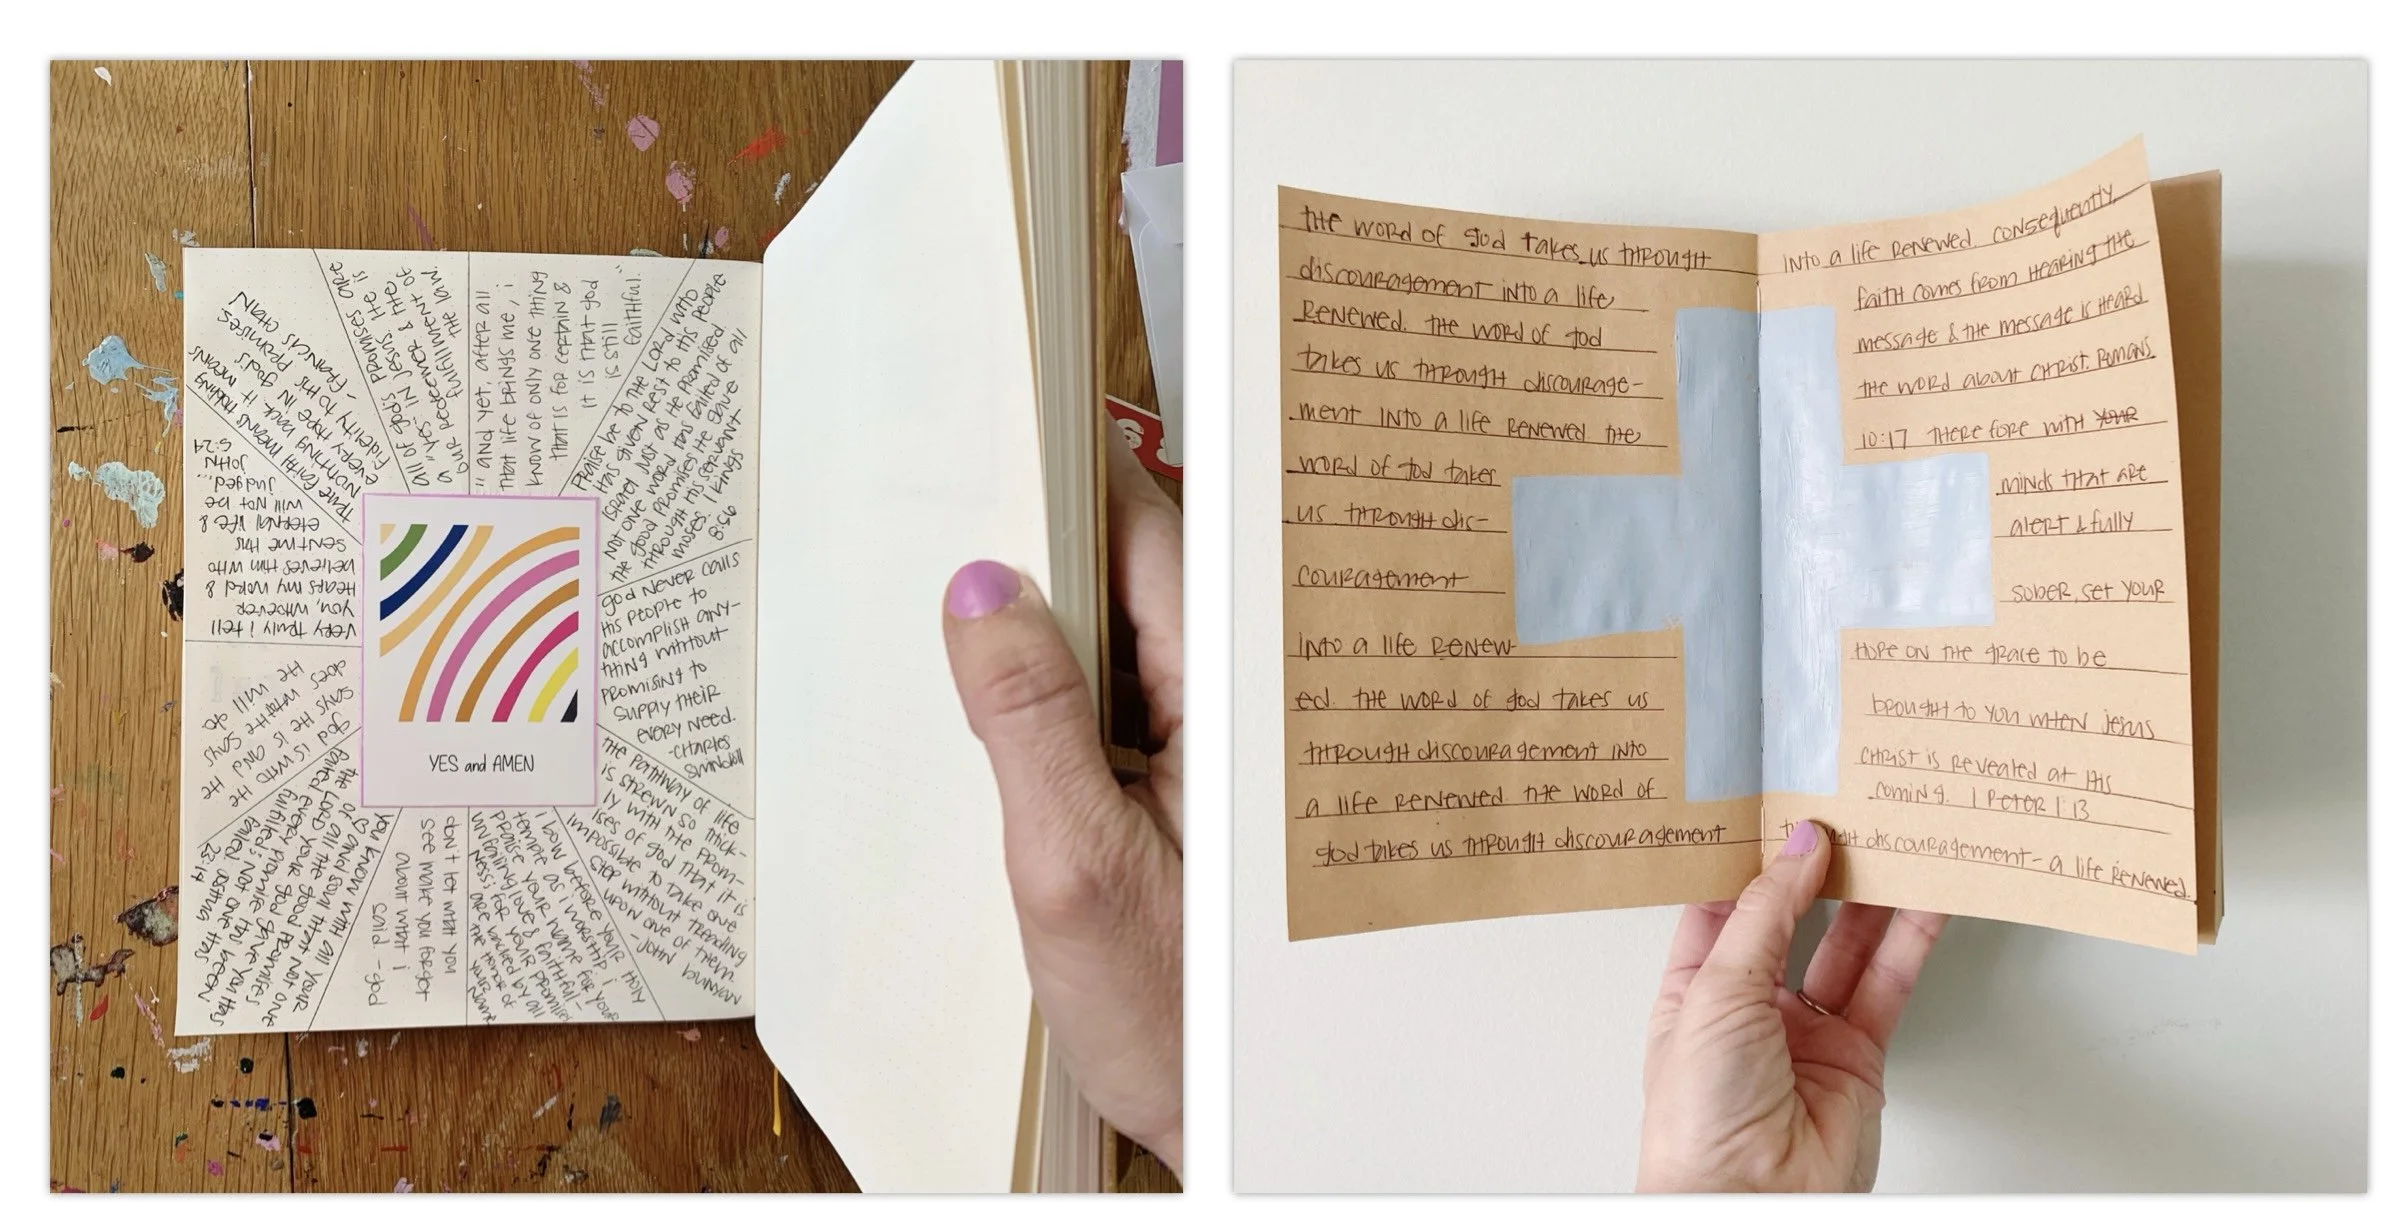 all of god's promises are
a "yes" in Jesus. He is
our redeemer & the
fulfillment of
the law.
"and yet, after all
that life brings me, i
know of only one thing
that is for certain &
it is that god
is still
faithful."
Praise be to the Lord who
has given rest to his people
Israel just as He promised
Not one word has failed of all
the good promises He gave
through His servant
Moses. 1 Kings
8:56
god never calls
His people to
accomplish any-
thing without
promising to
supply their
every need.
-Charles
Swindoll
the pathway of life
is strewn so thick-
ly with the prom-
ises of god that it is
impossible to take one
step without treading
upon one of them.
-John Bunyan
i bow before your holy
temple as i worship. i
praise your name for your
unfailing love & faithful-
ness; for your promises
are backed by all
the honor of
your name
don't let what you
see make you forget
about what i
said. -god
you know with all your
heart and soul that not one
of all the good promises
the Lord your god gave you has
failed. Every promise has been
fulfilled; not one has
failed. Joshua
23:14
god is who
He says He is and
does what He says
He will do
very truly i tell
you, whoever
hears my word &
believes him who
sent me has
eternal life &
will not be
judged...
John
5:24
true faith means holding
nothing back. it means
every hope in god's
fidelity to his promises.
- Francis Chan
YES and AMEN
the word of god takes us through
discouragement into a life
renewed. the word of god
takes us through discourage-
ment into a life renewed. the
word of god takes
us through dis-
couragement
into a life renew-
ed. the word of god takes us
through discouragement into
a life renewed. the word of
god takes us through discouragement
into a life renewed. consequently,
faith comes from hearing the
message & the message is heard
the word about christ. Romans
10:17 therefore with your
minds that are
alert & fully
sober, set your
hope on the grace to be
brought to you when Jesus
christ is revealed at His
coming. 1 Peter 1:13
through discouragement - a life renewed.